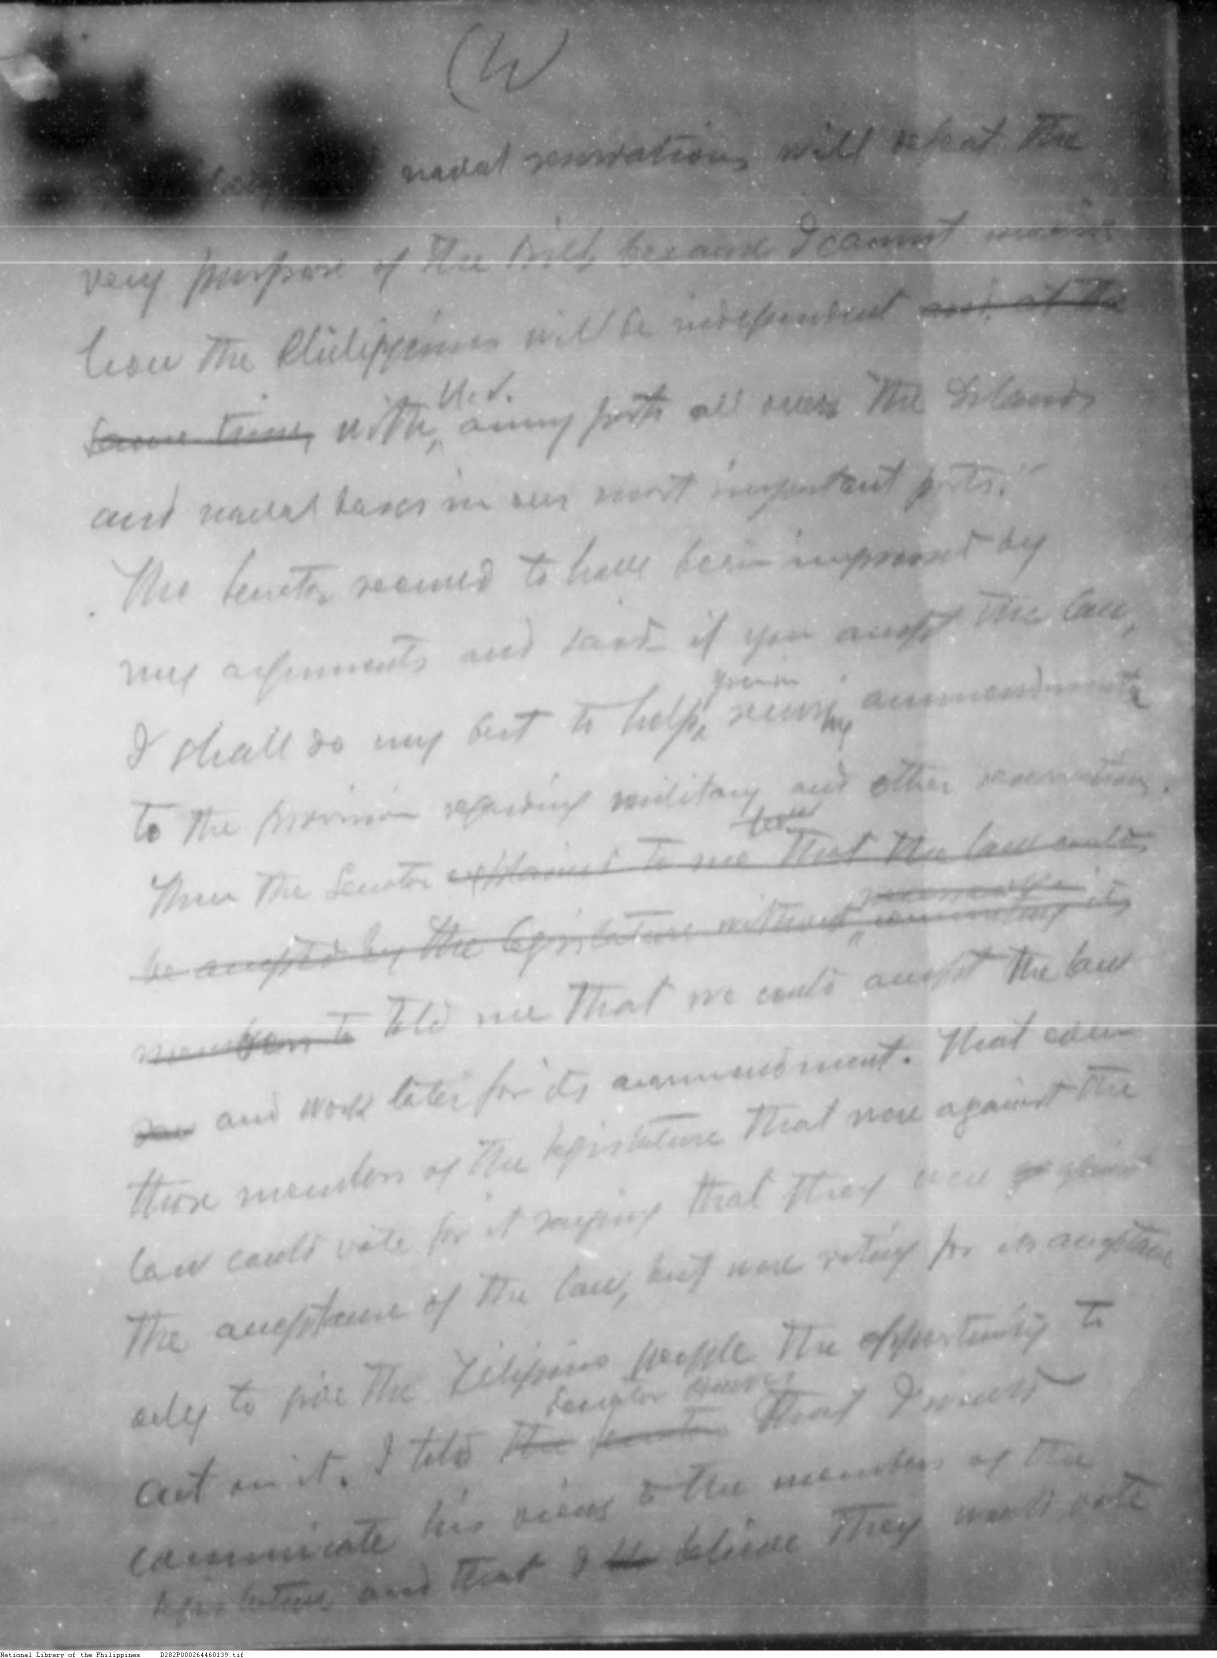 naval reservations will defeat the
very purpose of the bill, because I cannot
how the Philippines will be independent and at the
same time, with U.S. army posts all over the Islands
and naval bases in our most important ports."
The Senator seemed to have been impressed by
my arguments and said if you accept the law,
I shall do my best to help you in securing ammendments
to the provision regarding military and other reservations.
Then the Senator explained to me how that the law could
be accepted by the legislature without it
members to told me that we could accept the law
and work later for its ammendment. That even
those members of the legislature that were against the
law could vote for it saying that they were against
the acceptance of the law, but were voting for its acceptance
only to give the Filipino people the opportunity to
act on it. I told the Senator Senator Hawes that I would
communicate his views to the members of the
legislature and that I believe they would vote
National Library of the Philippines D282P000264460139.tif